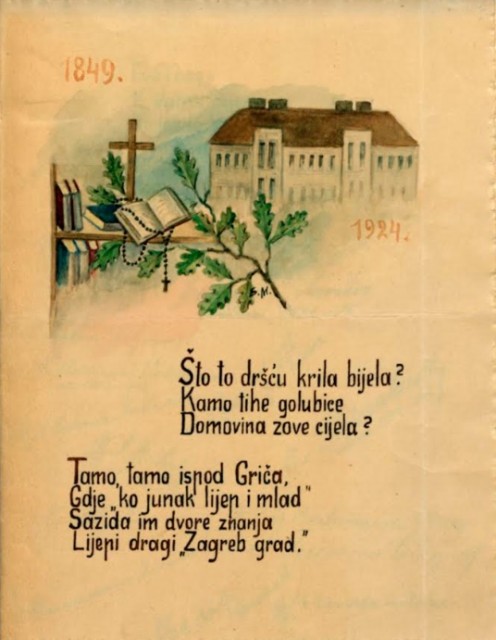 1849.
1924.
S.M.
Što to dršću krila bijela?
Kamo tihe golubice
Domovina zove cijela?
Tamo, tamo ispod Griča,
Gdje „ko junak lijep i mlad"
Sazida im dvore znanja
Lijepi dragi „Zagreb grad."